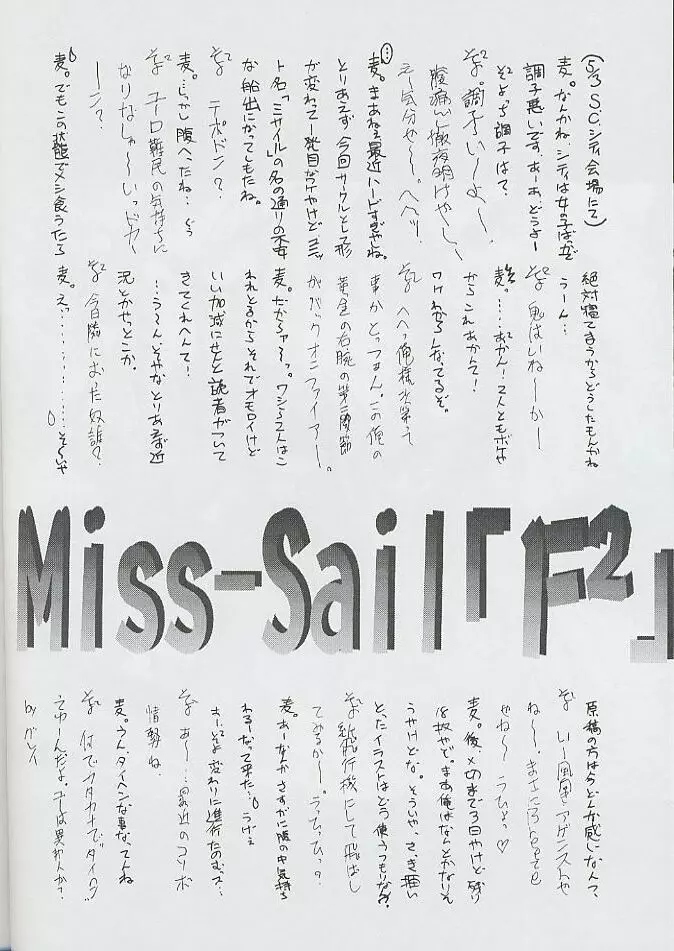 (5/3 S.C.シティ会場にて)
麦。なんかね、シティは女の子ばっかで
調子悪いです。あーあ、どうよー
そよち調子は?
そよ。調子い〜よ〜、
腹痛いし徹夜明けやし、
え〜気分せ〜。へへッ!
麦。まあねえ最近ハードすぎやね。
とりあえず今回サークルとして形
が変わって一発目なわけやけど、
ト名「ミサイル」の名の通りの不安
な船出になってしもたね。
そよ テポドン?
麦。…しかし腹へったね…
そよ ユーロ難民の気持ちに
なりなしゃ〜いっ
ーン?
麦。でもこの状態でメシ食うたら
絶対寝てまうからどうしたもんかね
うーん…
そよ 鬼はいね〜か〜
麦。…あかん!2人ともボケや
からこれあかんて!
ワケわからんなってるぞ。
そよ へへっ俺様が笑って
事かとっつぁん。この俺の
黄金の右腕の第三関節
がバクオニファイアー。
麦。だからァ〜っ。ワシら2人はこ
われとるからそれでオモロイけど
いい加減にせんと読者がついて
きてくれへんて!
…う〜んそやなとりあえず近
況とかやっとこか。
そよ 今日隣におった奴誰?
麦。え゛………………そ〜いや
Miss-Sail「F²」
原稿の方はどんな感じなん?
そよ い〜風 アゲンストや
ね〜。まさにBreeze
やね〜 うひょっ♡
麦。後、〆切まで3日やけど残り
18枚やぞ。まあ俺はなんとかなりそ
うやけどな。そういや、さっき描い
とったイラストはどう使うつもりなん?
そよ 紙飛行機にして飛ばし
てみるか〜。うひっひっ。
麦。あーなんかさすがに腹の中気持ち
わるーなって来た…うげえ
おーそよ 変わりに進行たのむっス…
そよ あ〜…最近のコリボ
情勢ね。
麦。うん、タイヘンな事なってんね
そよ 何でカタカナで“タイヘン”
てゆーんだよ。
by ガレイ